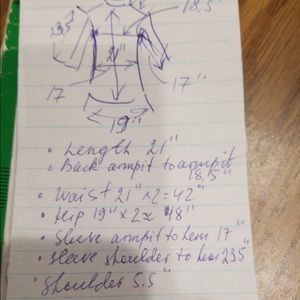 18.5"
23.5
21"
17
17"
19"
• Length 21"
• Back armpit to armpit
18,5"
• Waist 21" x2=42"
• Hip 19" x2≈ 48"
• Sleeve armpit to hem 17"
• Sleeve shoulder to hem 23,5"
• Shoulder 5.5"